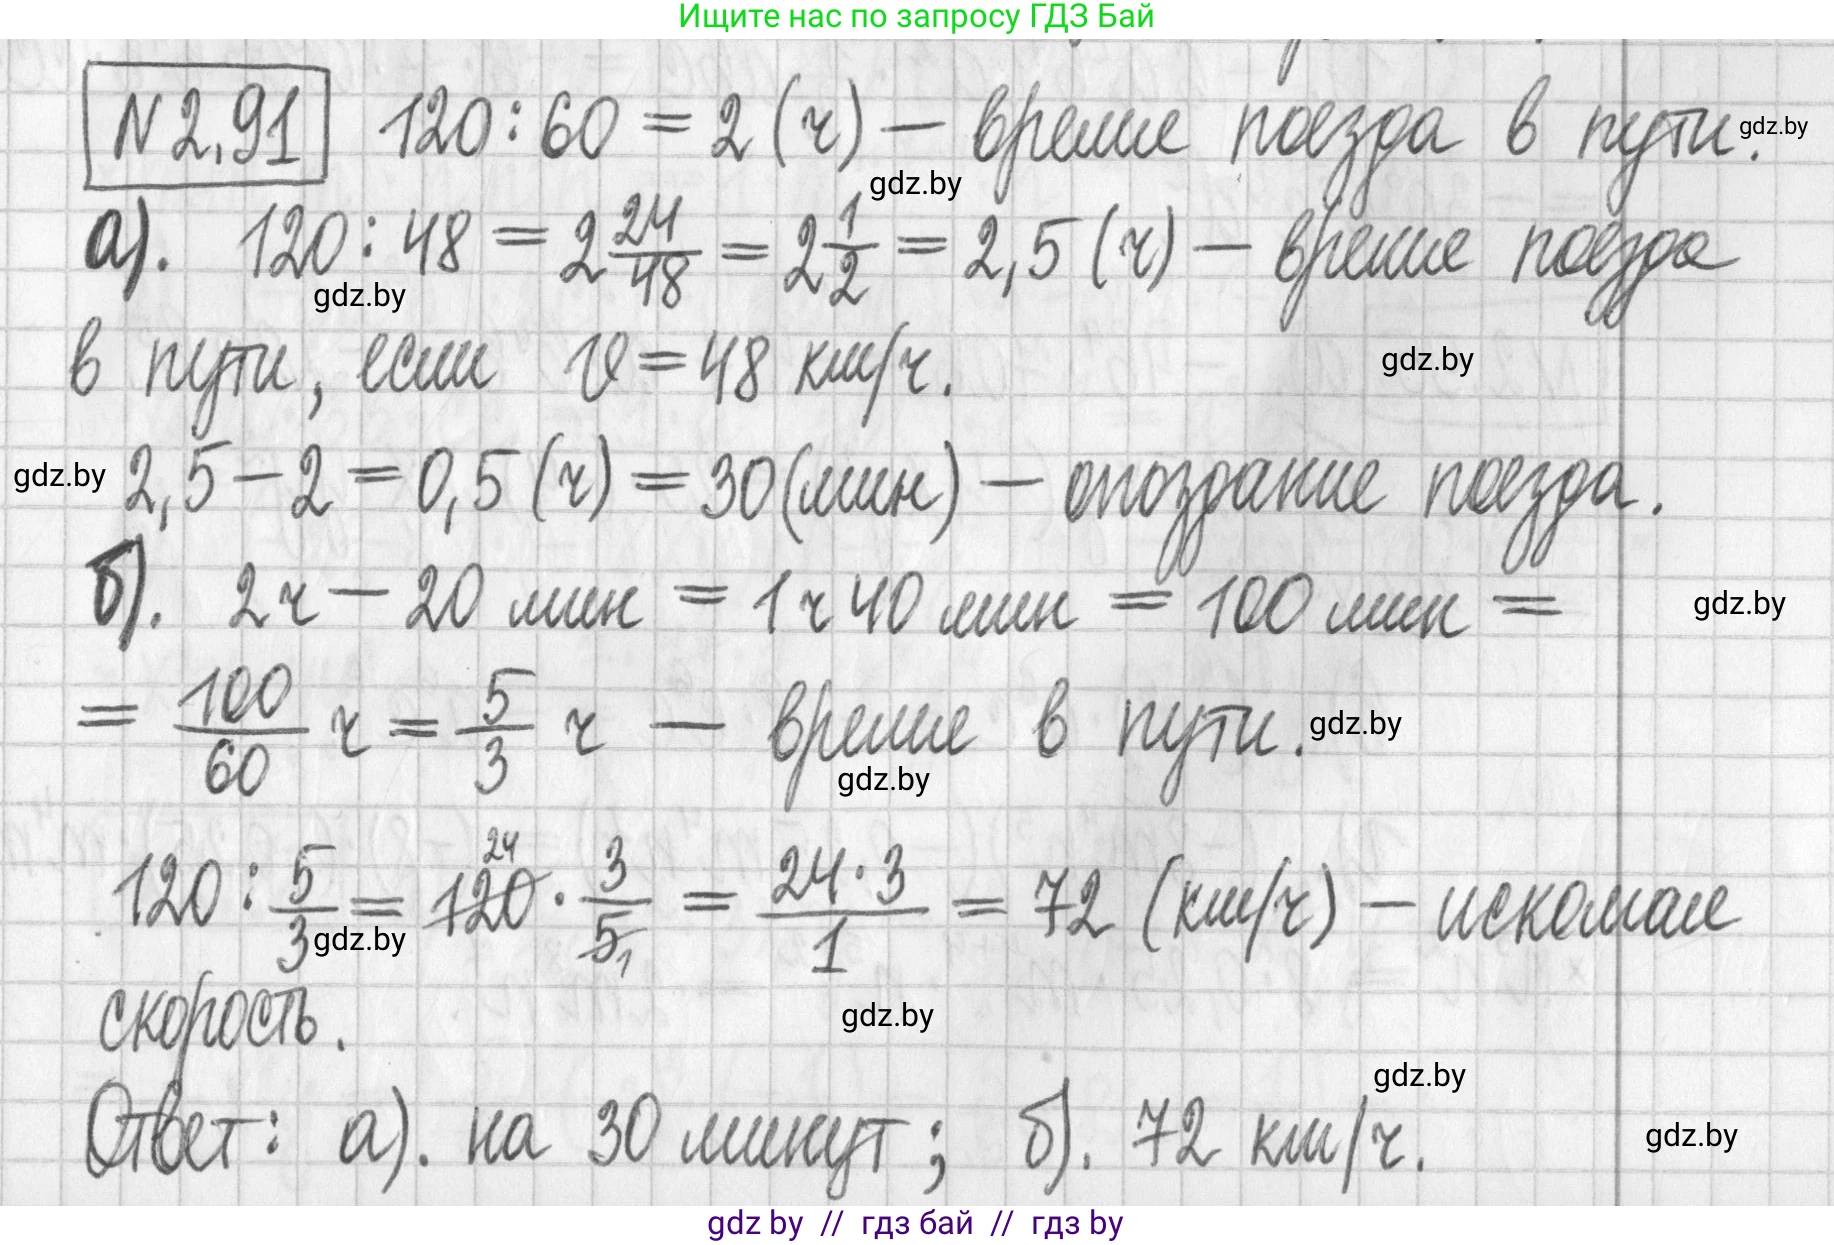 Ищите нас по запросу ГДЗ Бай
N 2,91 120 : 60 = 2 (ч) — время поезда в пути. gdz.by
gdz.by
а). 120 : 48 = 2 24/48 = 2 1/2 = 2,5 (ч) — время поезда
gdz.by
в пути, если v = 48 км/ч. gdz.by
gdz.by 2,5 − 2 = 0,5 (ч) = 30 (мин) — опоздание поезда.
б). 2 ч − 20 мин = 1 ч 40 мин = 100 мин = gdz.by
= 100/60 ч = 5/3 ч — время в пути. gdz.by
gdz.by
120 : 5/3 = 120 24 · 3/5 1 = 24 · 3/1 = 72 (км/ч) — искомая
gdz.by
скорость. gdz.by
gdz.by
Ответ: а). на 30 минут; б). 72 км/ч. gdz.by
gdz by // гдз бай // гдз by